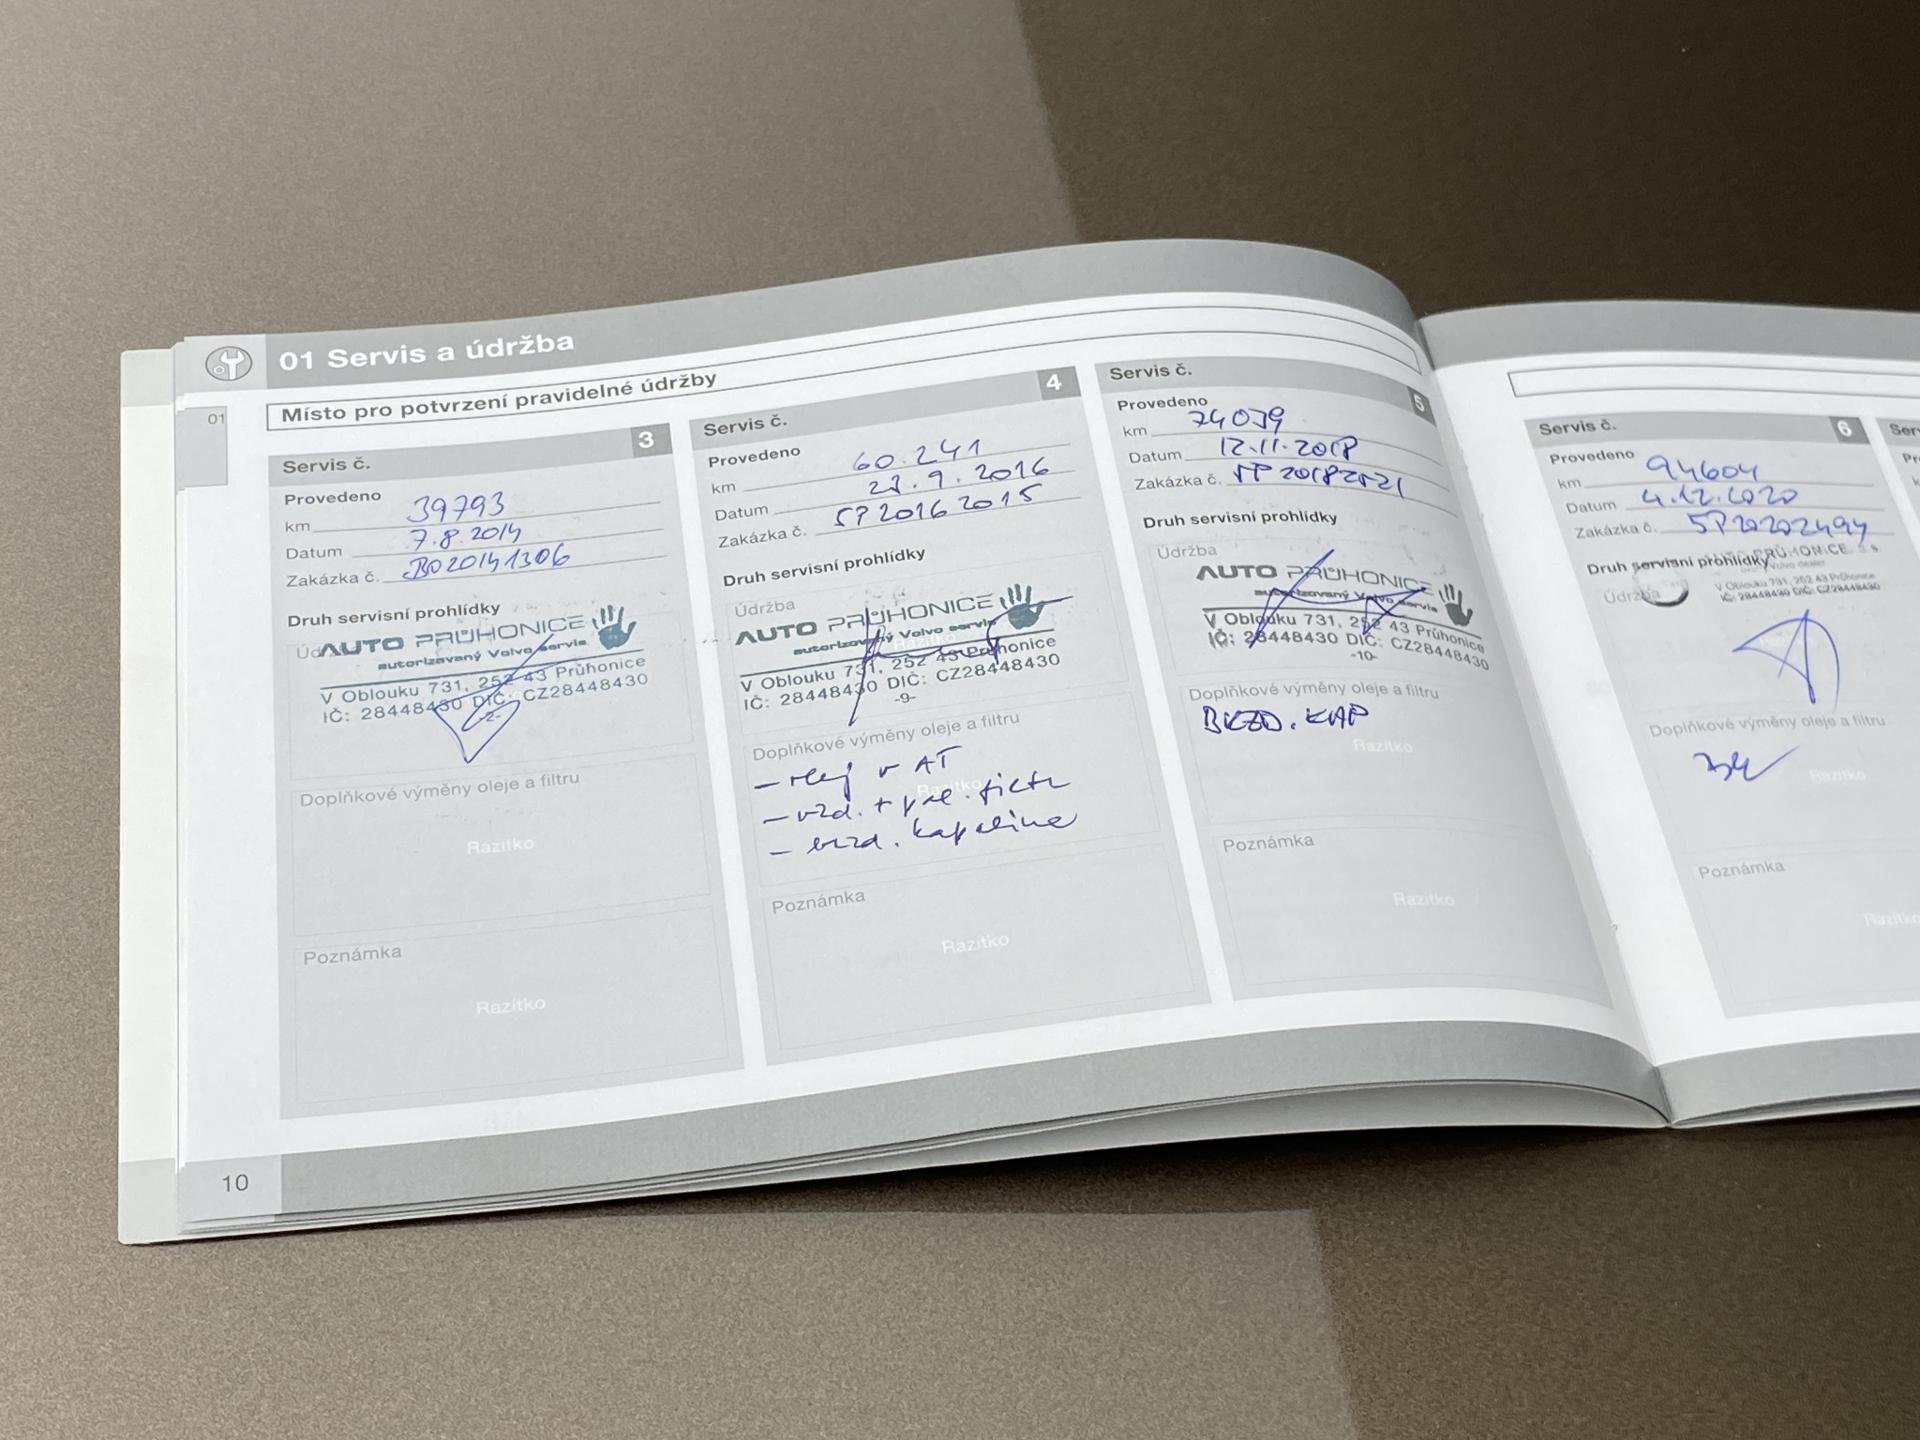 01 Servis a údržba
Místo pro potvrzení pravidelné údržby
01
Servis č. 3
Provedeno
km 39793
Datum 7.8.2014
Zakázka č. BO20141306
Druh servisní prohlídky
AUTO PRŮHONICE
autorizovaný Volvo servis
V Oblouku 731, 252 43 Průhonice
IČ: 28448430 DIČ: CZ28448430
-2-
Doplňkové výměny oleje a filtru
Razítko
Poznámka
Razítko
Servis č. 4
Provedeno
km 60.241
Datum 9.2016
Zakázka č. SP20162015
Druh servisní prohlídky
Údržba
AUTO PRŮHONICE
autorizovaný Volvo servis
V Oblouku 731, 252 43 Průhonice
IČ: 28448430 DIČ: CZ28448430
-9-
Doplňkové výměny oleje a filtru
- olej v AT
- vzd. + pyl. filtr
- brzd. kapalina
Razítko
Poznámka
Razítko
Servis č. 5
Provedeno
km 74079
Datum 12.11.2018
Zakázka č. SP20182521
Druh servisní prohlídky
Údržba
AUTO PRŮHONICE
autorizovaný Volvo servis
V Oblouku 731, 252 43 Průhonice
IČ: 28448430 DIČ: CZ28448430
-10-
Doplňkové výměny oleje a filtru
BRZD. KAP
Razítko
Poznámka
Razítko
Servis č. 6
Provedeno
km 94604
Datum 4.12.2020
Zakázka č. SP20202494
Druh servisní prohlídky
PRŮHONICE
Volvo dealer
V Oblouku 731, 252 43 Průhonice
IČ: 28448430 DIČ: CZ28448430
Údržba
Doplňkové výměny oleje a filtru
Razítko
Poznámka
Razítko
10